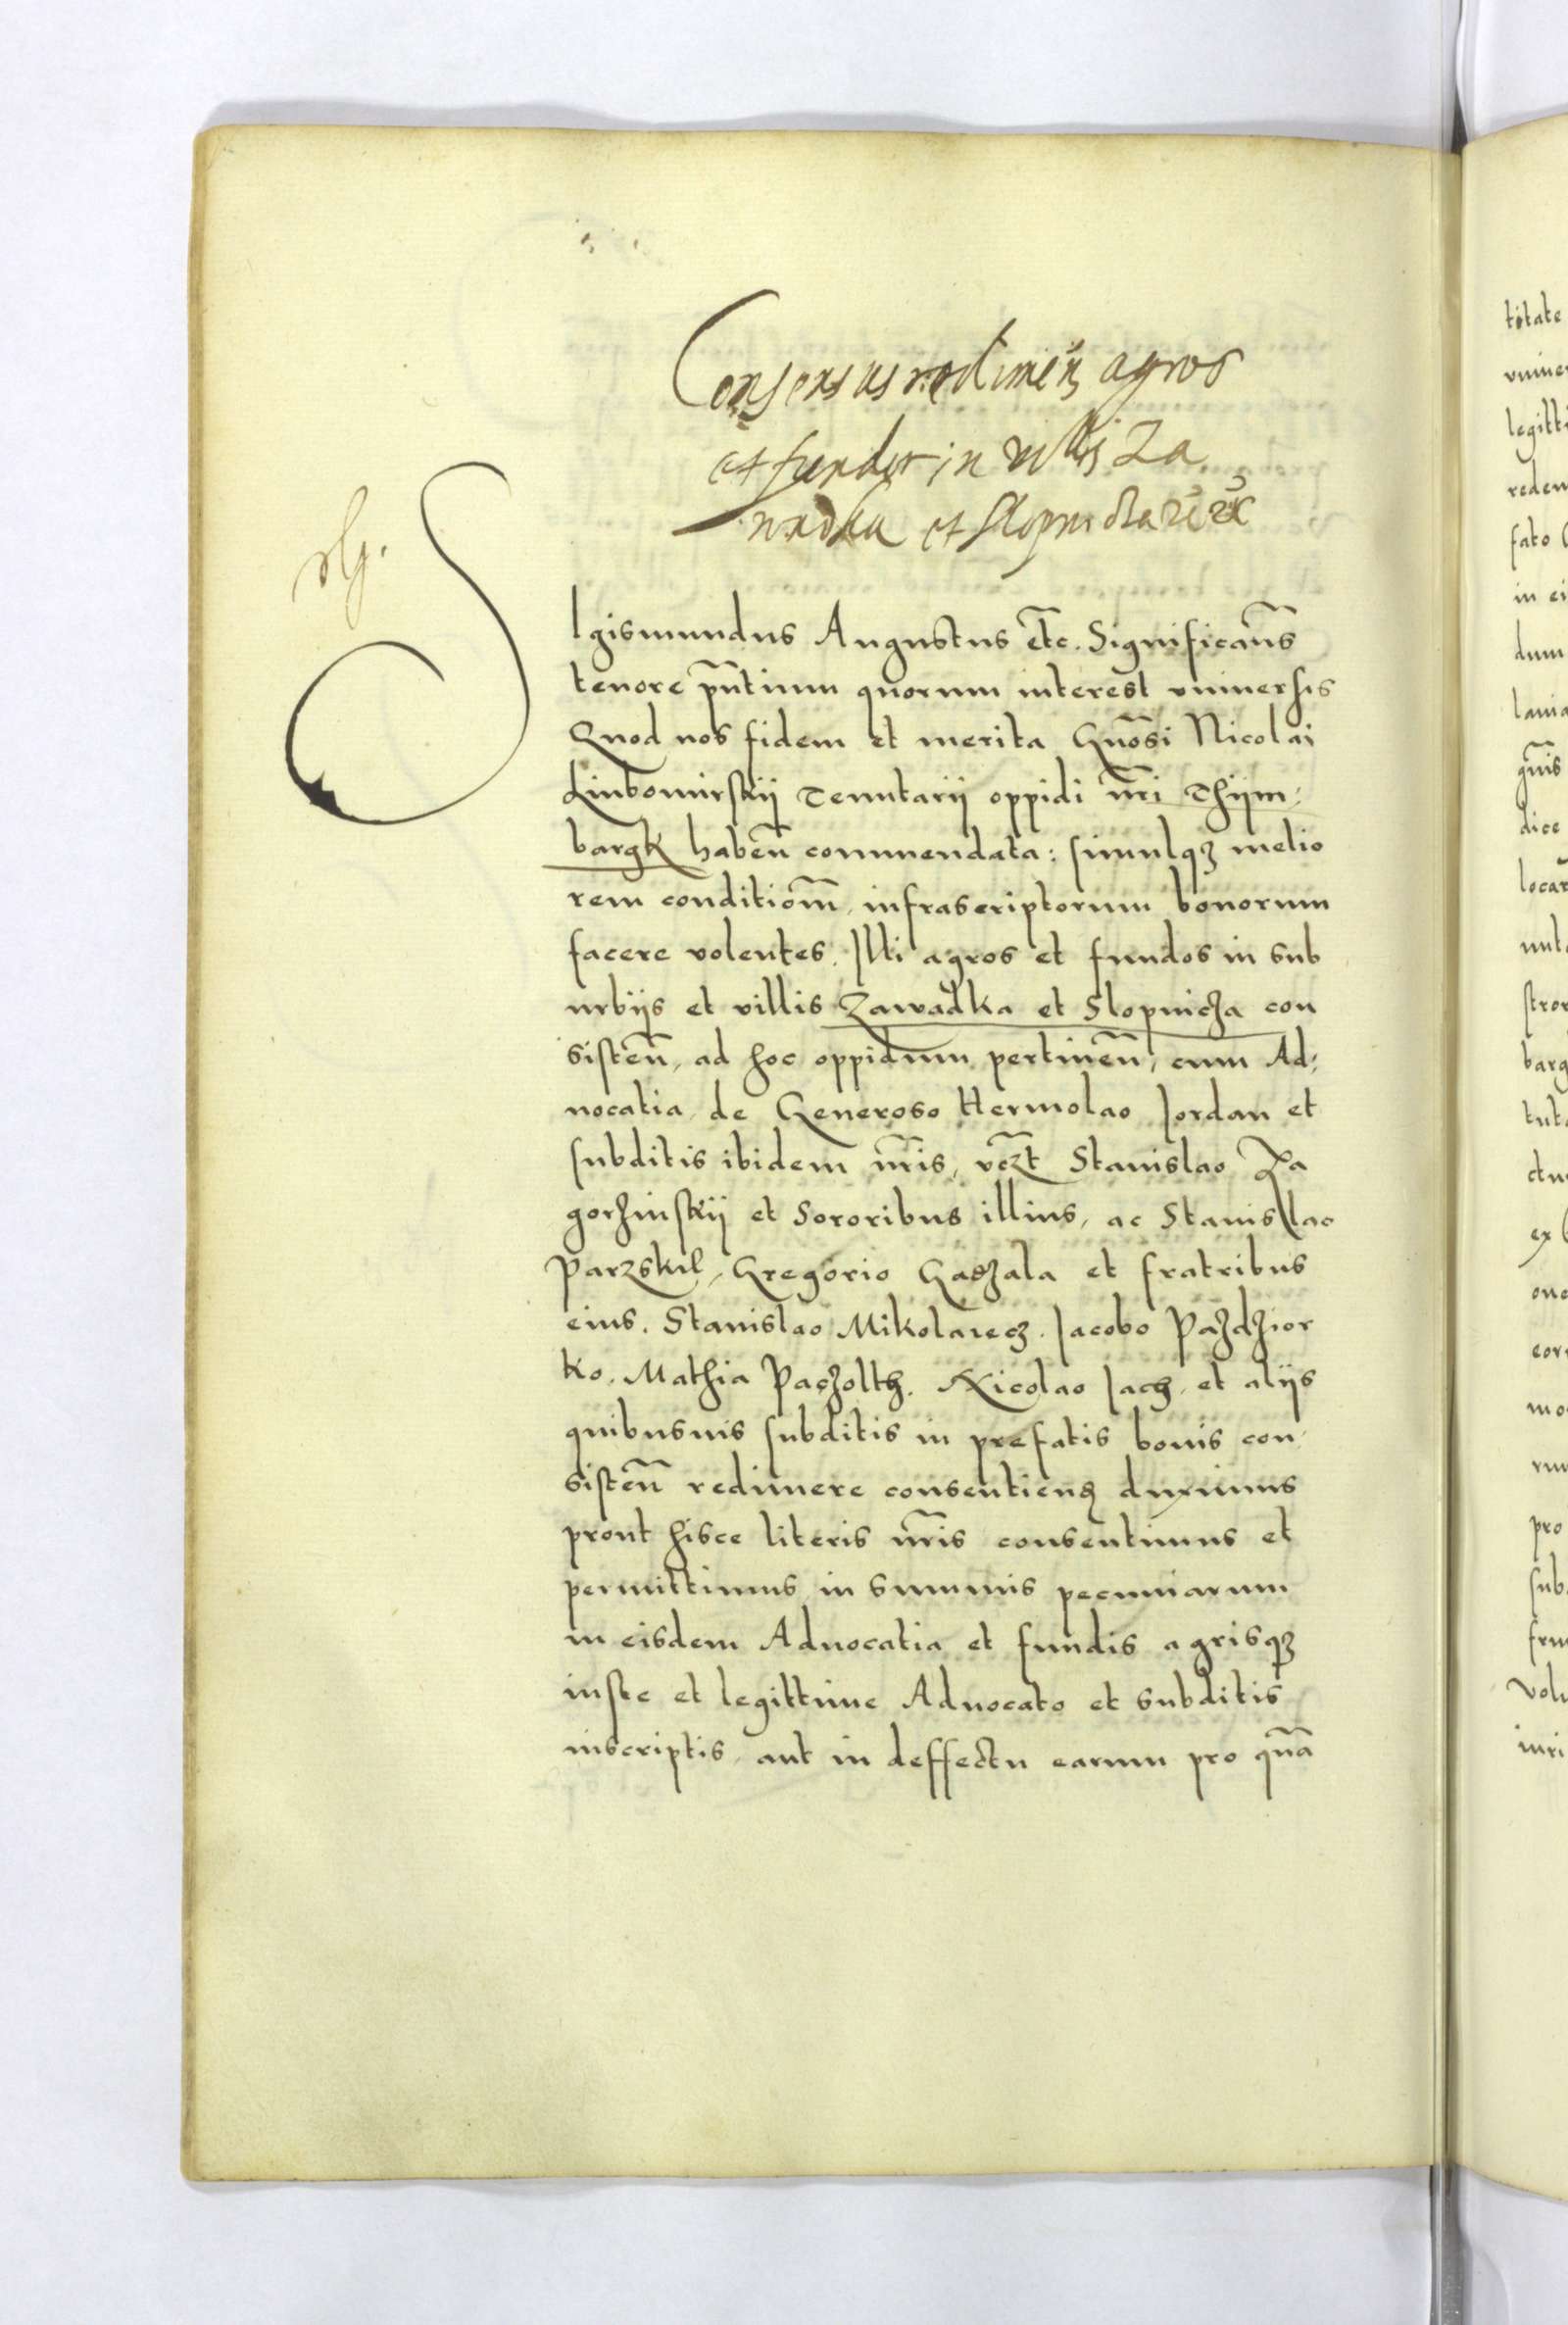 Consensus redimen̄ agros
et fundos in villis Za
wadka et Slopnicza
SIgismundus Augustus etc̄. Significam̄s
tenore pn̄tium quorum interest vniuersis
Quod nos fidem et merita Gn̄osi Nicolai
Liubomirskij Tenutarij oppidi nr̄i Thijm:
bargk haben̄ commendata: simulqꝫ melio
rem conditiom̄, infrascriptorum bonorum
facere volentes. Illi agros et fundos in sub
urbijs et villis Zawadka et Slopnicza con
sisten̄, ad hoc oppidum pertinen̄, cum Ad:
uocatia de Generoso Hermolao Jordan et
subditis ibidem nr̄is, vcꝫt Stanislao Za
gorzinskij et Sororibus illius, ac Stanislao
Parzskil, Gregorio Gaszala et fratribus
eius. Stanislao Mikolaiecz. Jacobo Pazdzior
ko. Mathia Paczolth. Nicolao Jach, et alijs
quibusuis subditis in prefatis bonis con
sisten̄ redimere consentiend duximus
prout hisce literis nr̄is consentimus et
permittimus in summis pecuniarum
in eisdem Aduocatia et fundis agrisqꝫ
iuste et legittime Aduocato et subditis
inscriptis, aut in deffectu earum pro qn̄a
titate
legitti
reden
fato
in ei
dum
gn̄is
dice
barg
ex
pro
sub